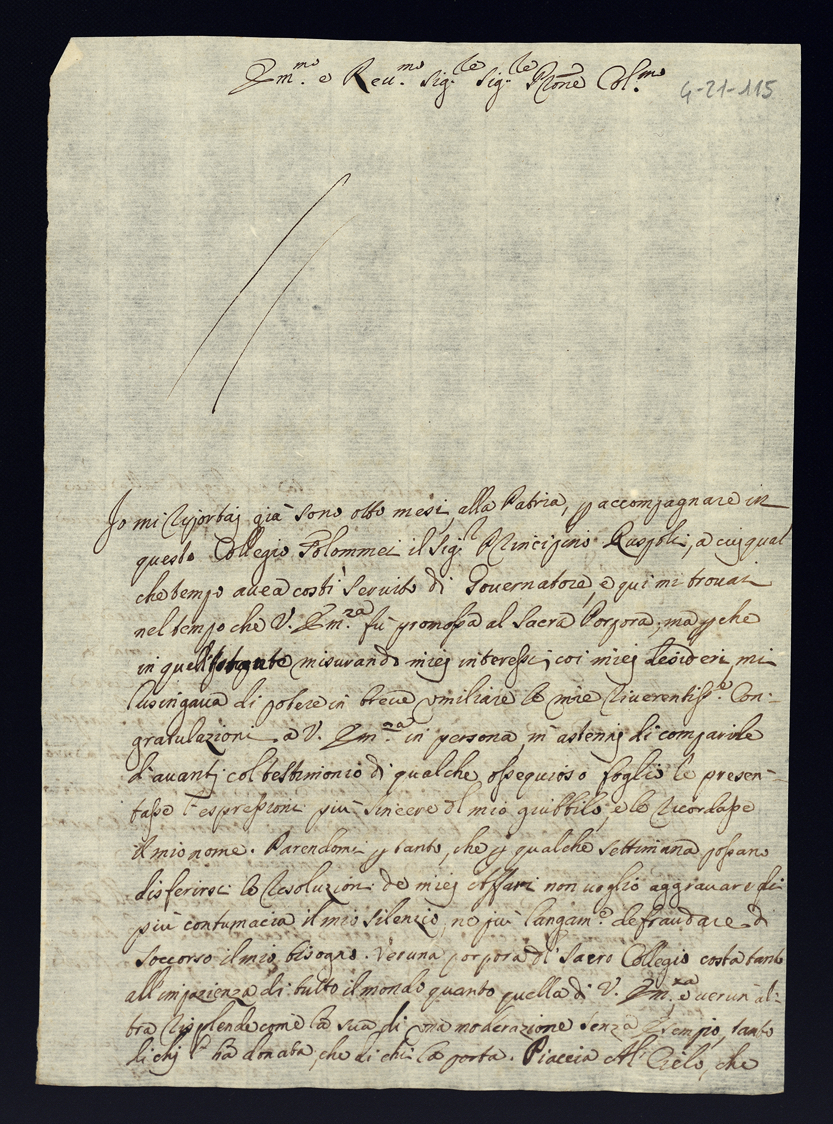 Em.mo e Reu.mo Sig.re Sig.re Prone Col.mo
G-21-115
Io mi riportai già sono otto mesi, alla Patria, p accompagnare in
questo Collegio Tolommei il Sig.r Principino Ruspoli, a cui qual
che tempo auea costì seruito di Gouernatore, e qui mi trouai
nel tempo che V. Em.za fù promossa al Sacra Porpora; ma p che
in quell' misurando miej interessi, coi miej desideri, mi
lusingaua di potere in breue umiliare le mie riuerentiss.e Con-
gratulazioni a V. Em.za in persona, m'astennj di comparirle
d'auantj col testimonio di qualche ossequioso foglio le presen-
tasse l'espressioni più sincere del mio giubbilo, e le ricordasse
il mio nome. Parendomi p tanto, che p qualche settimana possano
disferirsi le resoluzioni de miej Affari non uoglio aggrauare di
più contumacia il mio silenzio, ne più langam.e defraudare di
soccorso il mio bisogno. Veruna porpora del Sacro Collegio costa tanto
all'impazienza di tutto il mondo quanto quella di V. Em.za, e uerun' al-
tra risplende come la sua di una moderazione senza Esempio, tanto
di chi l'ha donata, che di chi la porta. Piaccia Al Cielo, che